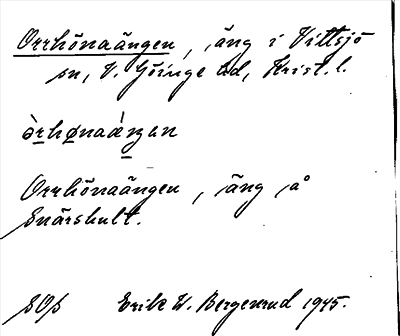 Orrhönaängen, äng i Vittsjö
sn, V. Göinge hd, Krist. l.
òrhønaáŋan
Orrhönaängen, äng på
Snärshult.
SOp Erik W. Bergenrud 1945.